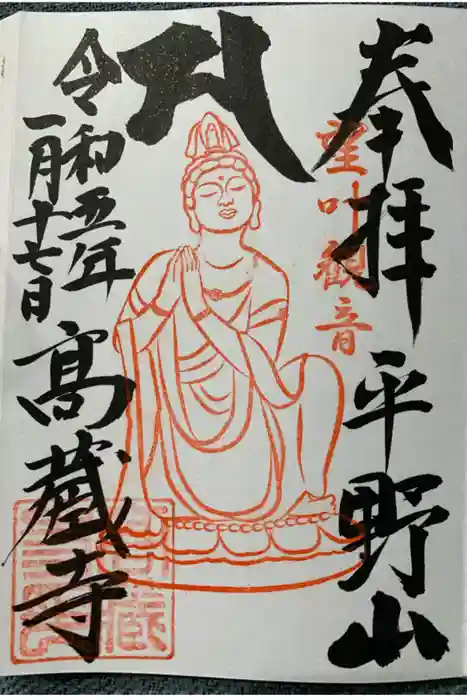 奉拝 平野山
望叶観音
令和五年
一月十七日
髙蔵寺